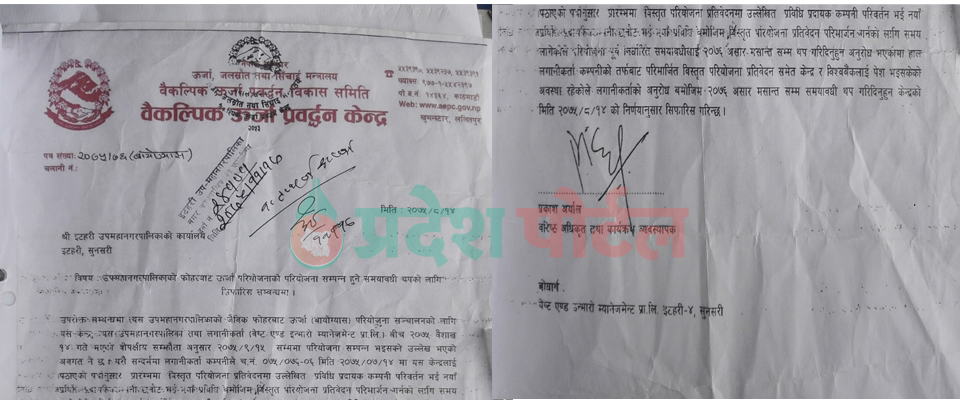 ऊर्जा, जलस्रोत तथा सिंचाई मन्त्रालय
वैकल्पिक ऊर्जा प्रवर्द्धन विकास समिति
वैकल्पिक ऊर्जा प्रवर्द्धन केन्द्र
फ्याक्स
Web: www.aepc.gov.np
खुमलटार, ललितपुर
पत्र संख्याः २०७५/७६ (बायोग्यास)
चलानी नं.:
इटहरी उप-महानगरपालिका
मिति : २०७५/८/१४
श्री इटहरी उपमहानगरपालिकाको कार्यालय
इटहरी, सुनसरी
प्रदेश पोर्टल
विषय : उपमहानगरपालिकाको फोहरबाट ऊर्जा परियोजनाको परियोजना सम्पन्न हुने समयावधी थपको लागि
सिफारिस सम्बन्धमा ।
उपरोक्त सम्बन्धमा त्यस उपमहानगरपालिकाको जैविक फोहरबाट ऊर्जा (बायोग्यास) परियोजना सञ्चालनको लागि
यस केन्द्र, त्यस उपमहानगरपालिका तथा लगानीकर्ता (वेष्ट एण्ड इन्भारो म्यानेजमेन्ट प्रा.लि.) बीच २०७५ वैशाख
१४ गते भएको त्रिपक्षीय सम्झौता अनुसार २०७५/९/१५ सम्ममा परियोजना सम्पन्न भइसक्ने उल्लेख भएको
अवगत नै छ । यसै सन्दर्भमा लगानीकर्ता कम्पनीले च.नं. ०७५/०७६-०६ मिति २०७५/०७/१४ मा यस केन्द्रलाई
पठाएको पत्रानुसार प्रारम्भमा विस्तृत परियोजना प्रतिवेदनमा उल्लेखित प्रविधि प्रदायक कम्पनी परिवर्तन भई नयाँ
प्रविधि भई नयाँ प्रविधि बमोजिम विस्तृत परियोजना प्रतिवेदन परिमार्जन गर्नको लागि समय
पठाएको पत्रानुसार प्रारम्भमा विस्तृत परियोजना प्रतिवेदनमा उल्लेखित प्रविधि प्रदायक कम्पनी परिवर्तन भई नयाँ
प्रविधि भई नयाँ प्रविधि बमोजिम विस्तृत परियोजना प्रतिवेदन परिमार्जन गर्नको लागि समय
लागेकोले परियोजना पूर्व निर्धारित समयावधीलाई २०७६ असार मसान्त सम्म थप गरिदिनुहुन अनुरोध भएकोमा हाल
लगानीकर्ता कम्पनीको तर्फबाट परिमार्जित विस्तृत परियोजना प्रतिवेदन समेत केन्द्र र विश्वबैंकलाई पेश भइसकेको
अवस्था रहेकोले लगानीकर्ताको अनुरोध बमोजिम २०७६ असार मसान्त सम्म समयावधी थप गरिदिनुहुन केन्द्रको
मिति २०७५/८/१४ को निर्णयानुसार सिफारिस गरिन्छ ।
प्रकाश अर्याल
वरिष्ठ अधिकृत तथा कार्यक्रम व्यवस्थापक
बोधार्थ :
वेष्ट एण्ड इन्भारो म्यानेजमेन्ट प्रा.लि. इटहरी-४, सुनसरी